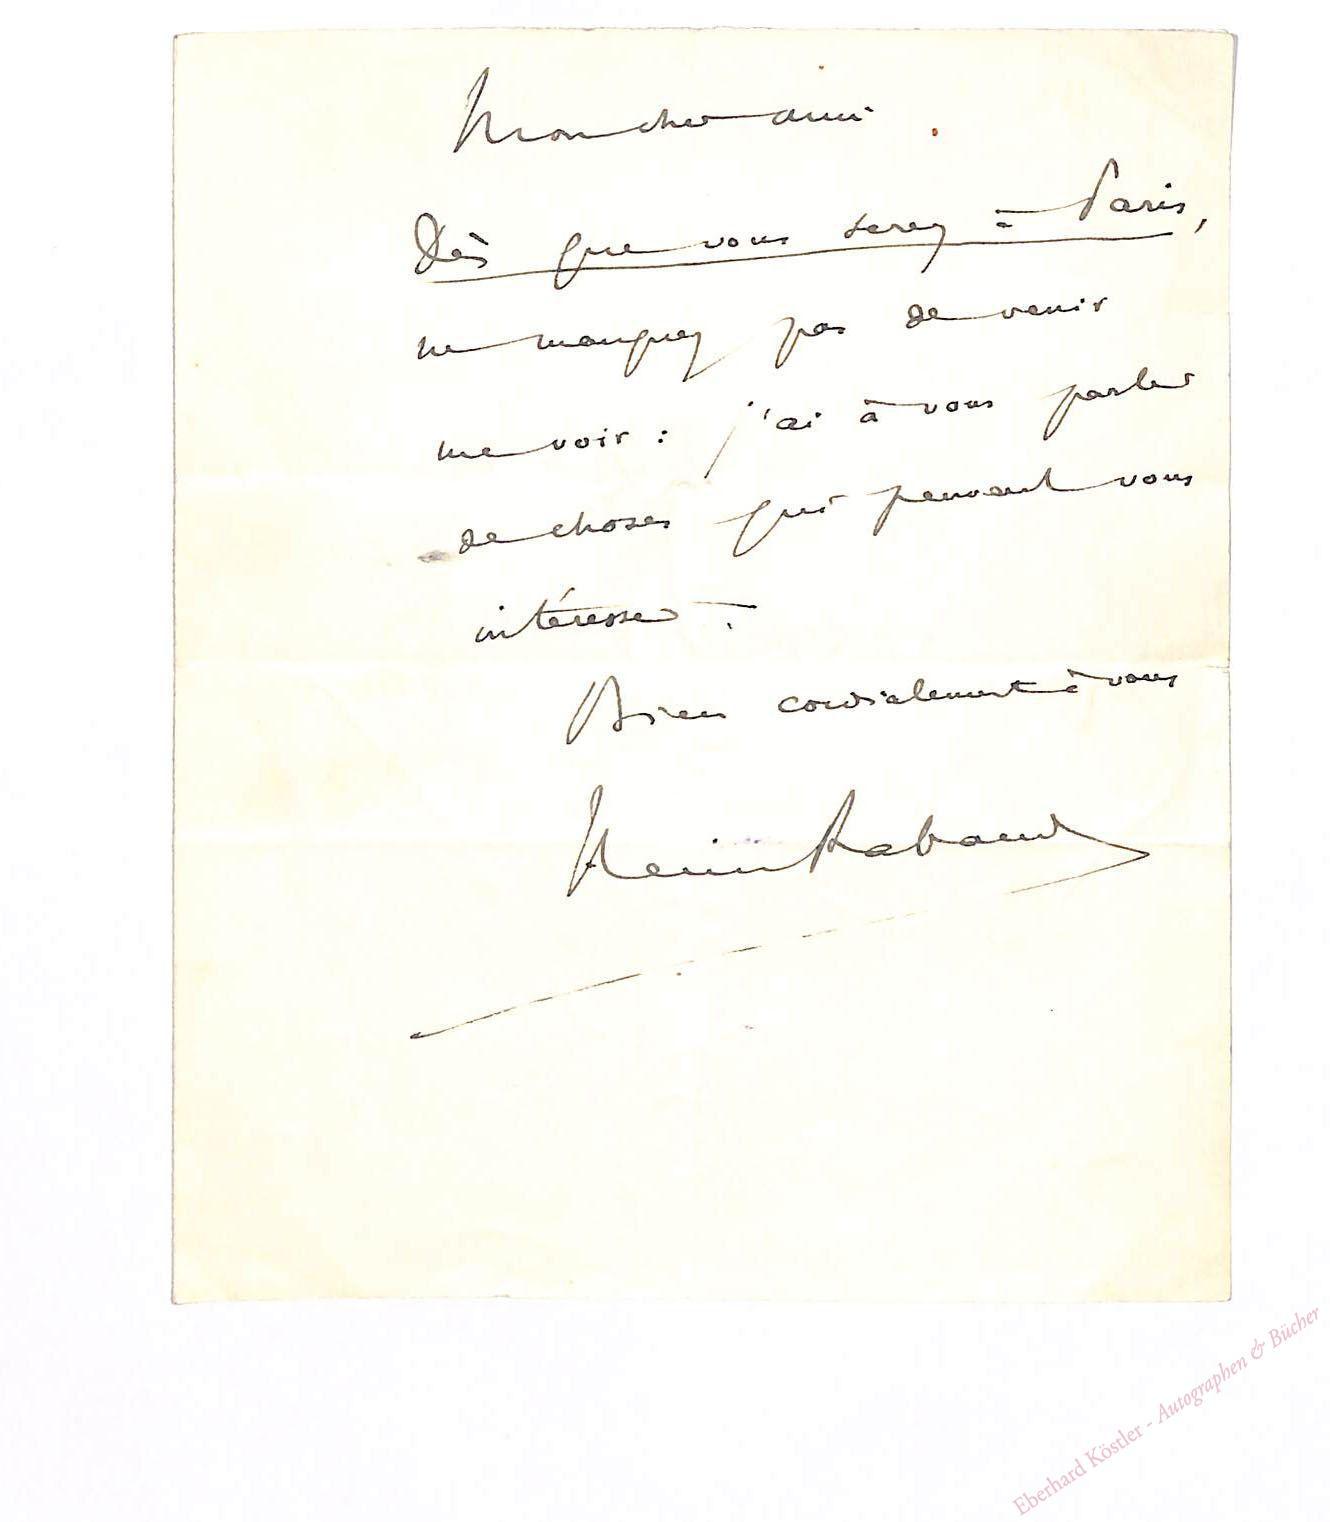 Mon cher ami
Dès que vous serez à Paris,
ne manquez pas de venir
me voir : j'ai à vous parler
de choses qui peuvent vous
intéresser.
Bien cordialement à vous
Henri Rabaud
Eberhard Köstler - Autographen & Bücher